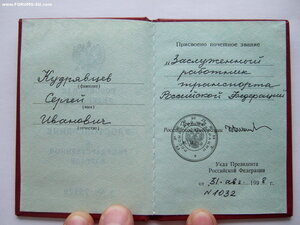 www.FORUMS-SU.com
Кудрявцев
(фамилия)
Сергей
(имя)
Иванович
(отчество)
Присвоено почетное звание
„Заслуженный
работник
транспорта
Российской Федерации
Президент
Российской Федерации
Указ Президента
Российской Федерации
от „31" авг 1998 г.
№ 1032